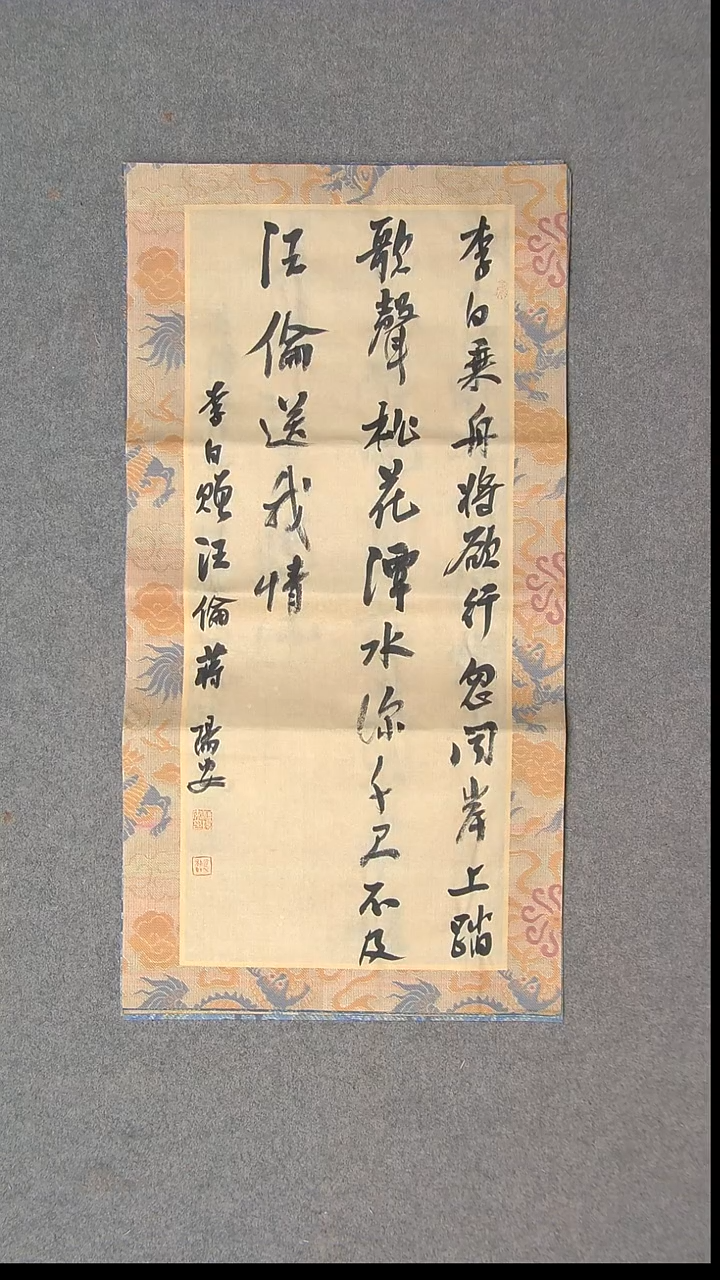 李白乘舟将欲行忽闻岸上踏
歌聲桃花潭水深千尺不及
汪倫送我情
李白贈汪倫蔣陽安